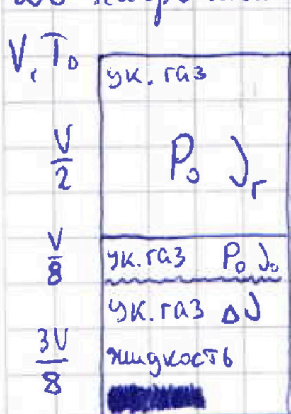 до нагрева
V, T₀
ук. газ
V/2
P₀ νг
V/8
ук. газ P₀ ν₀
ук. газ Δν
3V/8
жидкость